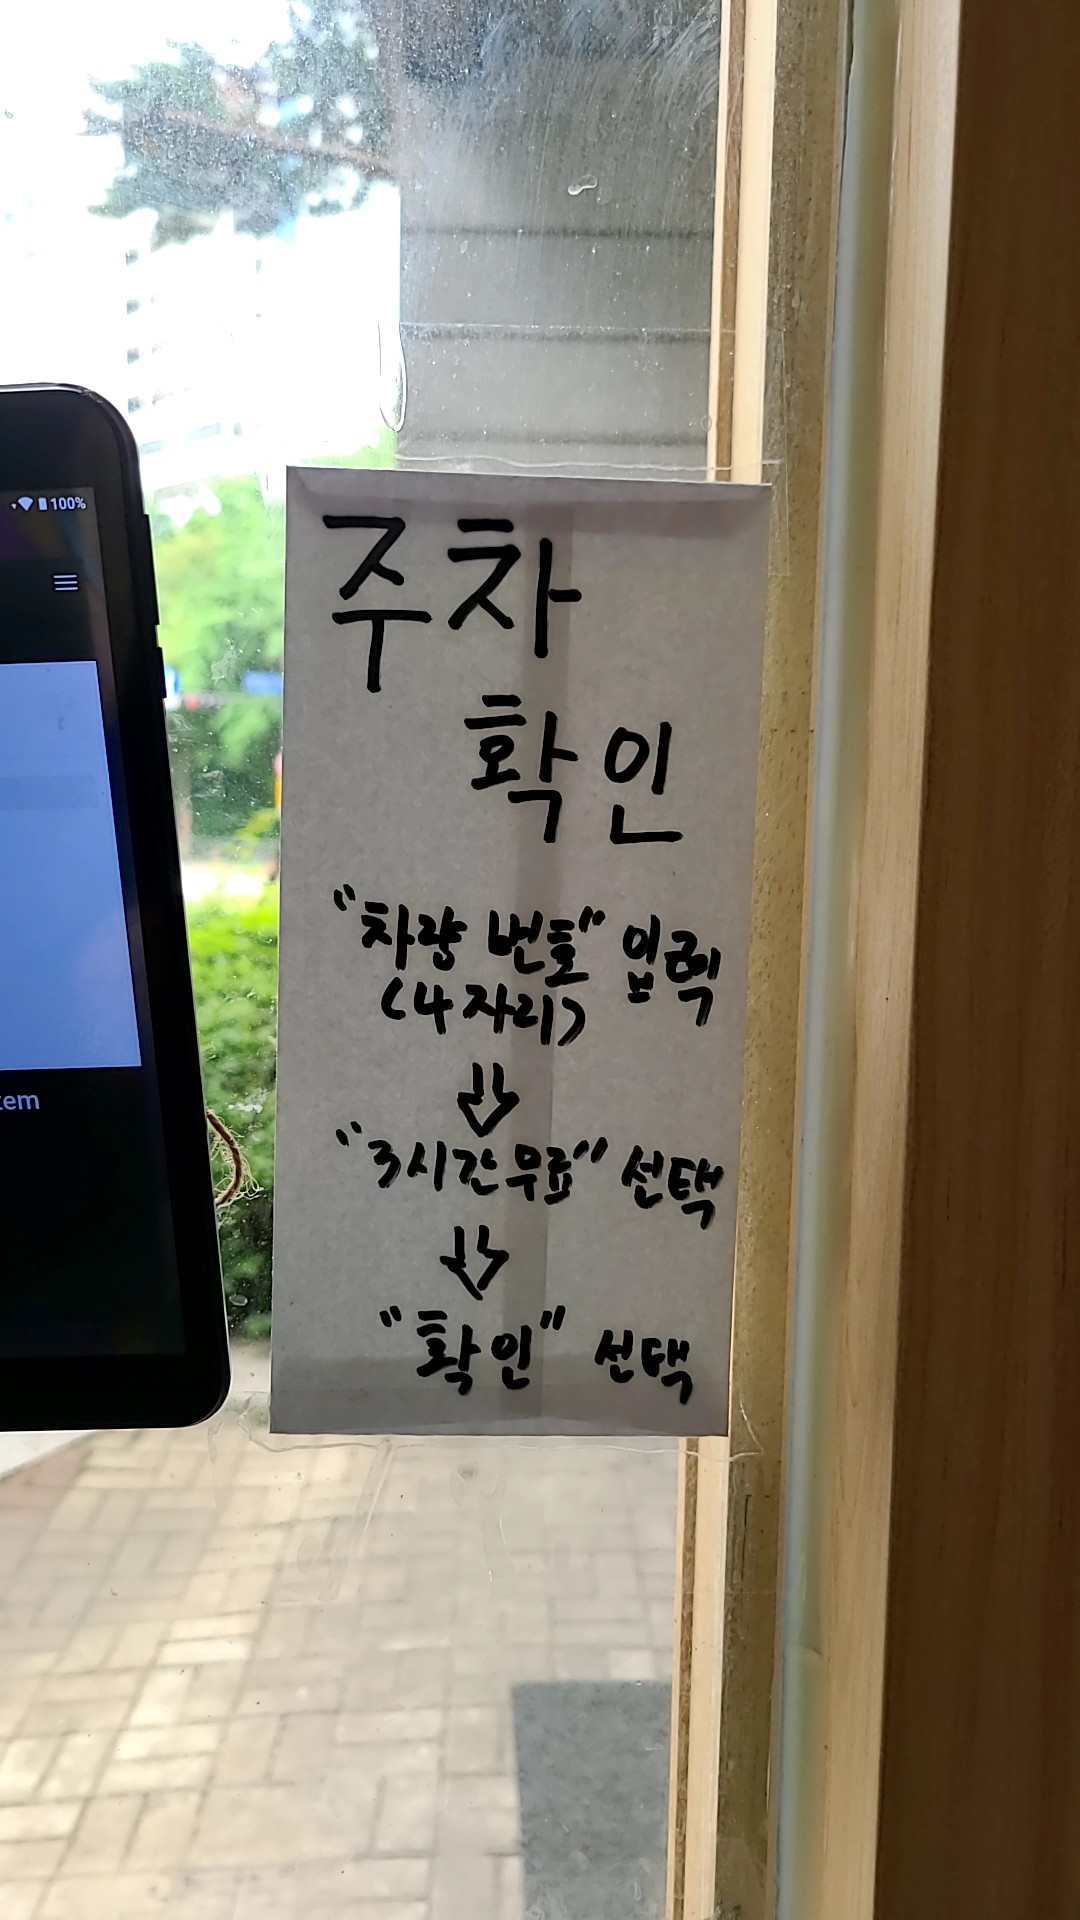 100%
tem
주차
확인
"차량 번호" 입력
(4자리)
⇓
"3시간무료" 선택
⇓
"확인" 선택